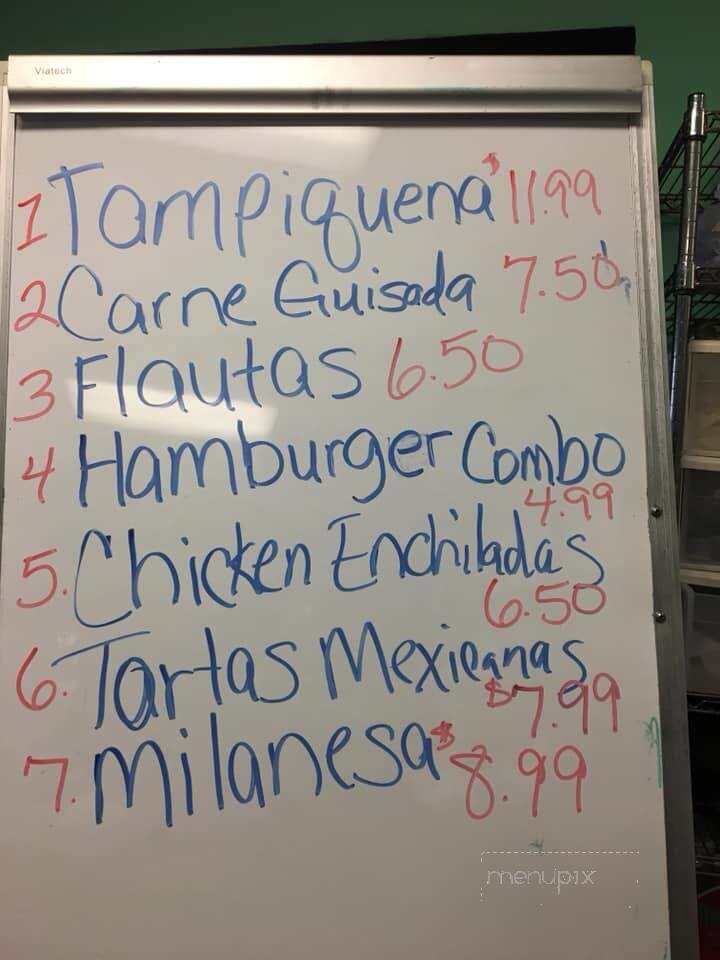 Viatech
1 Tampiquena $11.99
2 Carne Guisada 7.50
3 Flautas 6.50
4 Hamburger Combo
4.99
5. Chicken Enchiladas
6.50
6. Tartas Mexicanas
$7.99
7. Milanesa $8.99
menupix